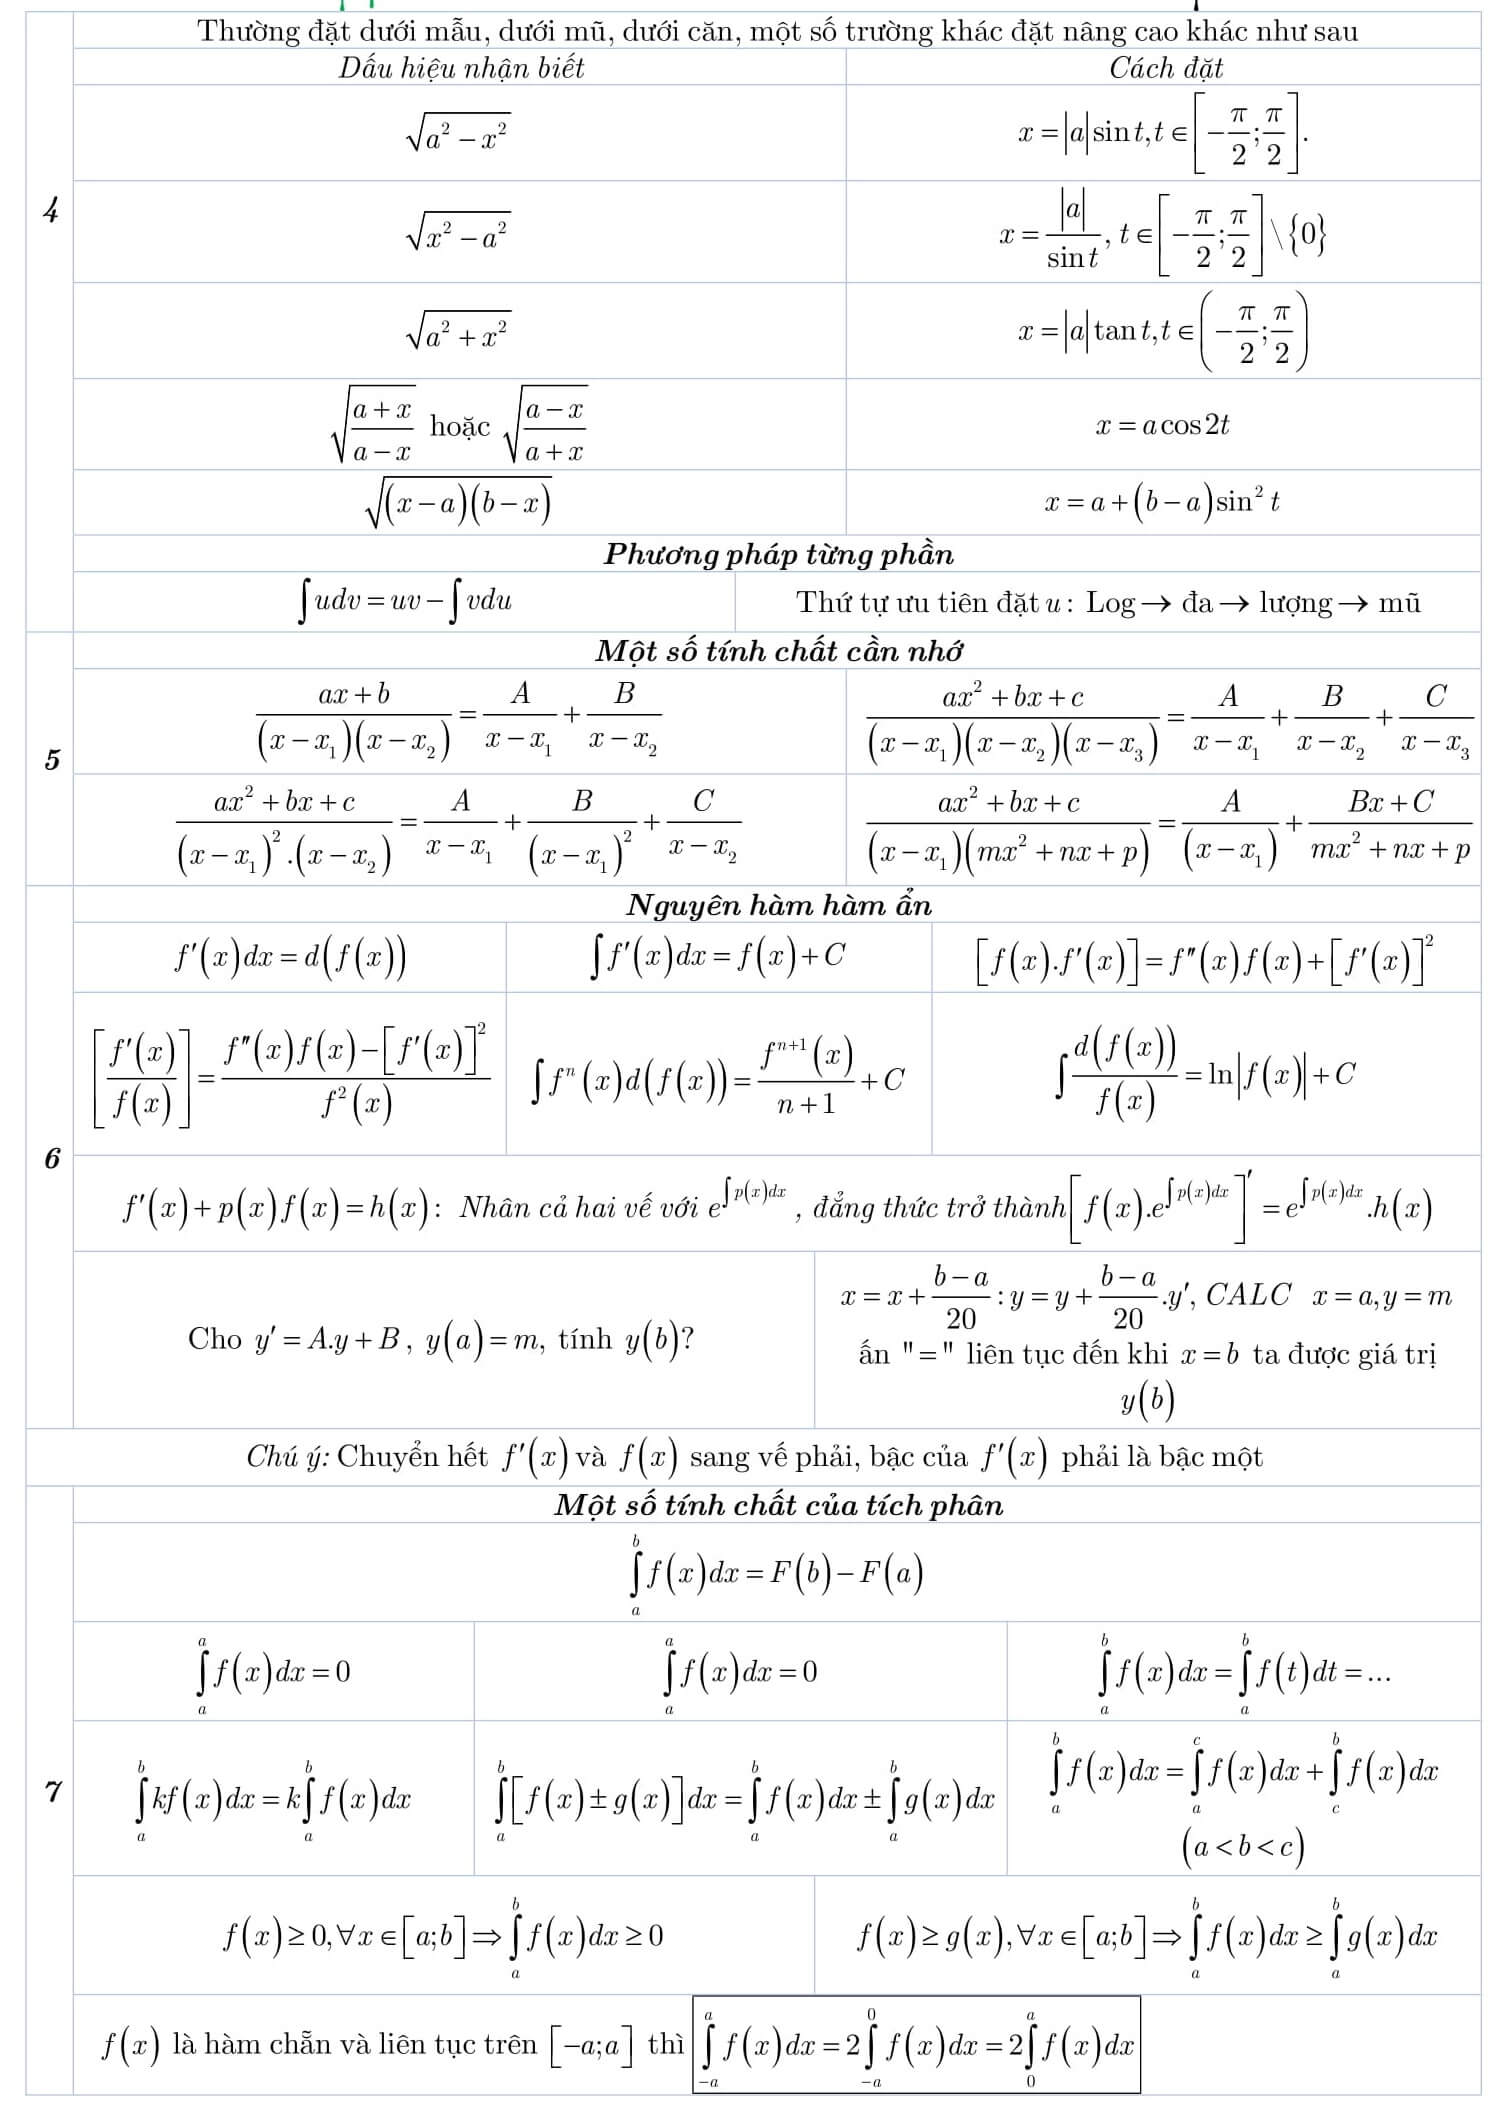 Thường đặt dưới mẫu, dưới mũ, dưới căn, một số trường khác đặt nâng cao khác như sau
Dấu hiệu nhận biết	Cách đặt
4
√(a² − x²)	x = |a| sin t, t ∈ [−π/2; π/2].
√(x² − a²)	x = |a|/sin t, t ∈ [−π/2; π/2] \ {0}
√(a² + x²)	x = |a| tan t, t ∈ (−π/2; π/2)
√((a + x)/(a − x)) hoặc √((a − x)/(a + x))	x = a cos 2t
√((x − a)(b − x))	x = a + (b − a) sin² t
Phương pháp từng phần
∫udv = uv − ∫vdu	Thứ tự ưu tiên đặt u : Log → đa → lượng → mũ
5
Một số tính chất cần nhớ
(ax + b)/((x − x₁)(x − x₂)) = A/(x − x₁) + B/(x − x₂)	(ax² + bx + c)/((x − x₁)(x − x₂)(x − x₃)) = A/(x − x₁) + B/(x − x₂) + C/(x − x₃)
(ax² + bx + c)/((x − x₁)².(x − x₂)) = A/(x − x₁) + B/(x − x₁)² + C/(x − x₂)	(ax² + bx + c)/((x − x₁)(mx² + nx + p)) = A/(x − x₁) + (Bx + C)/(mx² + nx + p)
6
Nguyên hàm hàm ẩn
f′(x)dx = d(f(x))	∫f′(x)dx = f(x) + C	[f(x).f′(x)] = f″(x)f(x) + [f′(x)]²
[f′(x)/f(x)] = (f″(x)f(x) − [f′(x)]²)/f²(x)	∫fⁿ(x)d(f(x)) = fⁿ⁺¹(x)/(n + 1) + C	∫d(f(x))/f(x) = ln|f(x)| + C
f′(x) + p(x)f(x) = h(x) : Nhân cả hai vế với e^(∫p(x)dx) , đẳng thức trở thành [f(x).e^(∫p(x)dx)]′ = e^(∫p(x)dx).h(x)
Cho y′ = A.y + B , y(a) = m, tính y(b)?
x = x + (b − a)/20 : y = y + (b − a)/20.y′, CALC x = a, y = m
ấn "=" liên tục đến khi x = b ta được giá trị
y(b)
Chú ý: Chuyển hết f′(x) và f(x) sang vế phải, bậc của f′(x) phải là bậc một
7
Một số tính chất của tích phân
∫ₐᵇ f(x)dx = F(b) − F(a)
∫ₐᵃ f(x)dx = 0	∫ₐᵃ f(x)dx = 0	∫ₐᵇ f(x)dx = ∫ₐᵇ f(t)dt = ...
∫ₐᵇ kf(x)dx = k∫ₐᵇ f(x)dx	∫ₐᵇ [f(x) ± g(x)]dx = ∫ₐᵇ f(x)dx ± ∫ₐᵇ g(x)dx	∫ₐᶜ f(x)dx + ∫_c^b f(x)dx = ∫ₐᵇ f(x)dx
(a < b < c)
f(x) ≥ 0, ∀x ∈ [a;b] ⇒ ∫ₐᵇ f(x)dx ≥ 0	f(x) ≥ g(x), ∀x ∈ [a;b] ⇒ ∫ₐᵇ f(x)dx ≥ ∫ₐᵇ g(x)dx
f(x) là hàm chẵn và liên tục trên [−a;a] thì ∫_(−a)^a f(x)dx = 2∫_(−a)^0 f(x)dx = 2∫_0^a f(x)dx